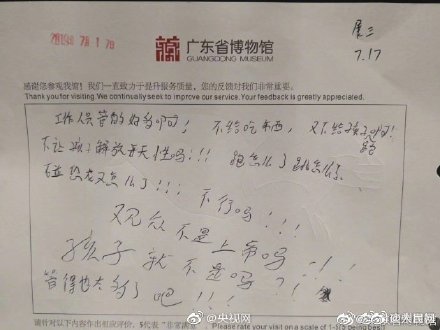 2019年7月17日
广东省博物馆
GUANGDONG MUSEUM
展三
7.17
感谢您参观我馆!我们一直致力于提升服务质量,您的反馈对我们非常重要。
Thank you for visiting. We continually seek to improve our service. Your feedback is greatly appreciated.
工作人员管的好多啊! 不给吃东西, 又不给孩子跑!
不让孩子解放天性吗!!! 跑怎么了 跳怎么了
碰恐龙又怎么了!!! 不行吗!!!
观众不是上帝吗!!!
孩子就不是吗?!!
管得也太多了吧!!!
请针对以下内容作出相应评价,5代表"非常满意
Please rate your visit on a scale of 1-5
@央视网